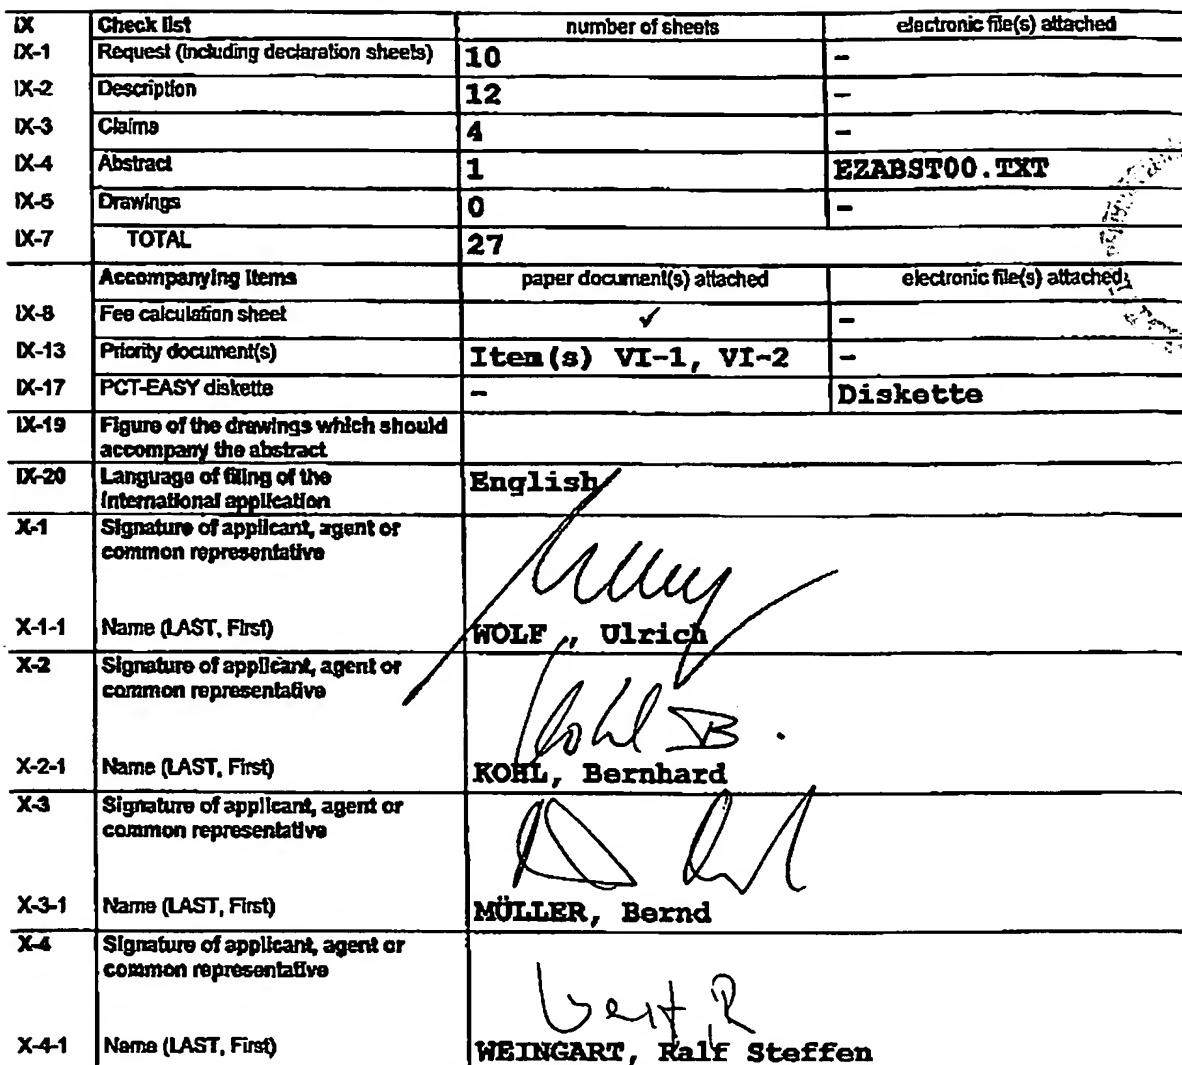 IX Check list number of sheets electronic file(s) attached
IX-1 Request (including declaration sheets) 10 -
IX-2 Description 12 -
IX-3 Claims 4 -
IX-4 Abstract 1 EZABST00.TXT
IX-5 Drawings 0 -
IX-7 TOTAL 27
Accompanying Items paper document(s) attached electronic file(s) attached
IX-8 Fee calculation sheet ✓ -
IX-13 Priority document(s) Item(s) VI-1, VI-2 -
IX-17 PCT-EASY diskette - Diskette
IX-19 Figure of the drawings which should
accompany the abstract
IX-20 Language of filing of the English
international application
X-1 Signature of applicant, agent or
common representative
X-1-1 Name (LAST, First) WOLF , Ulrich
X-2 Signature of applicant, agent or
common representative
Kohl B.
X-2-1 Name (LAST, First) KOHL, Bernhard
X-3 Signature of applicant, agent or
common representative
X-3-1 Name (LAST, First) MÜLLER, Bernd
X-4 Signature of applicant, agent or
common representative
X-4-1 Name (LAST, First) WEINGART, Ralf Steffen